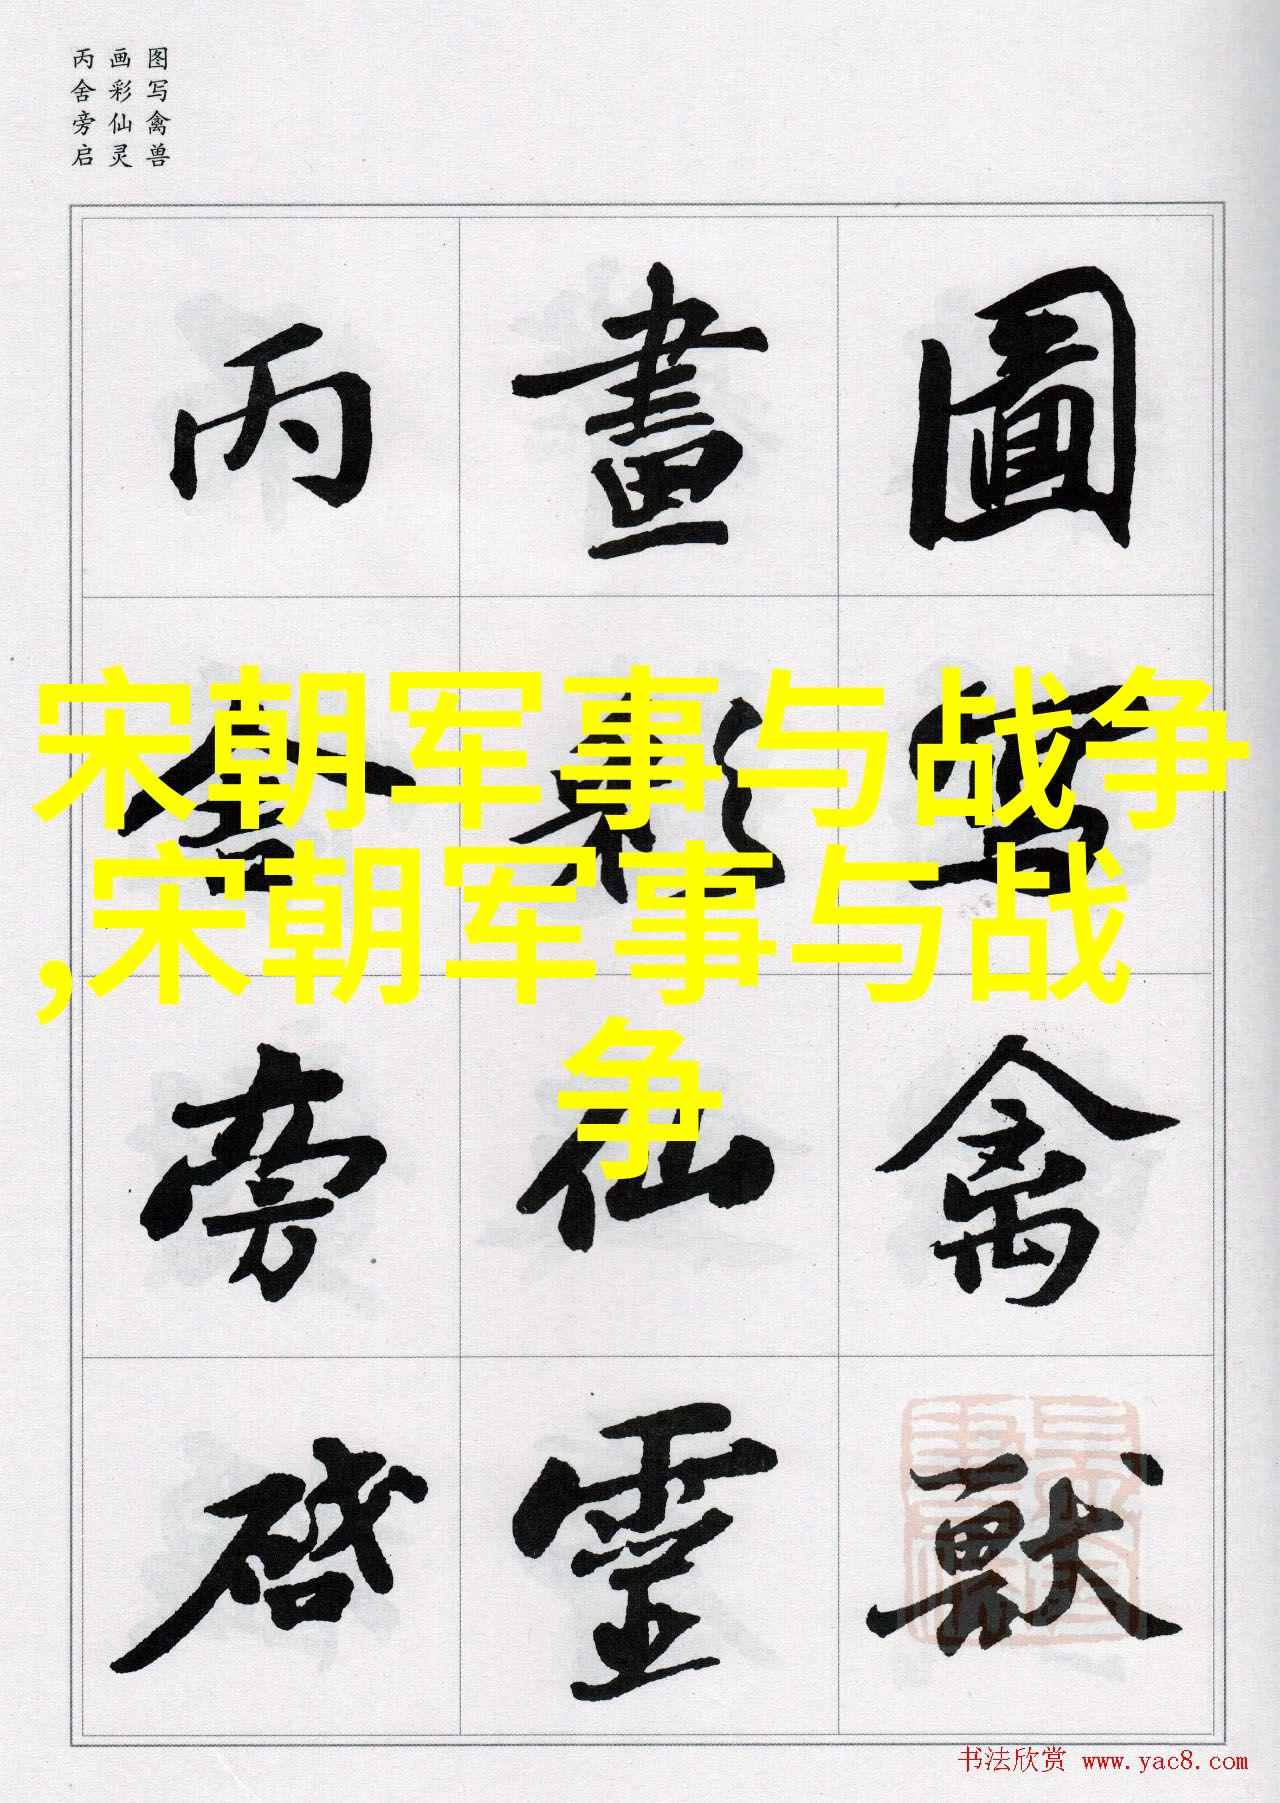 图写禽兽
画彩仙灵
丙舍旁启
圖寫禽獸
畫彩仙靈
丙舍旁啓
宋朝军事与战争
,宋朝军事与战
争
书法欣赏 www.yac8.com